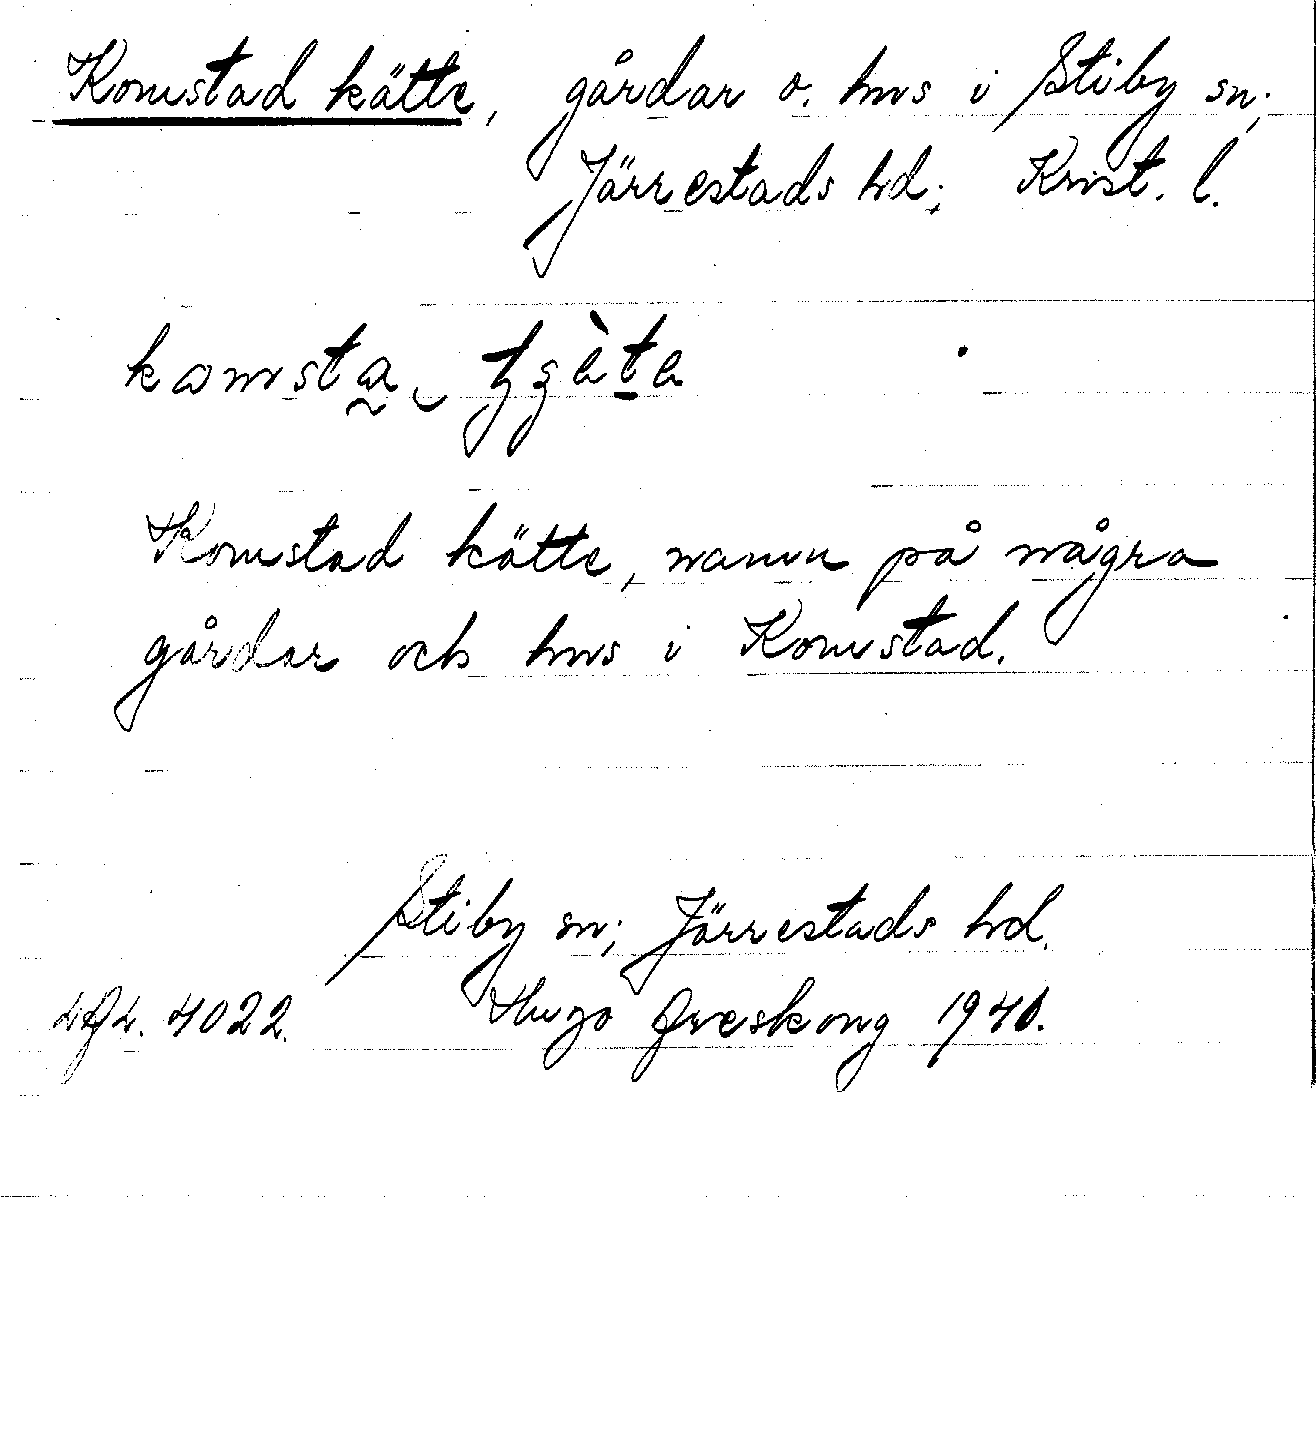 Komstad kätte, gårdar o. hus i Stiby sn;
Järrestads hd; Krist. l.
Komstad kätte, namn på några
gårdar och hus i Komstad.
Stiby sn; Järrestads hd.
4022. Hugo Areskoug 1940.